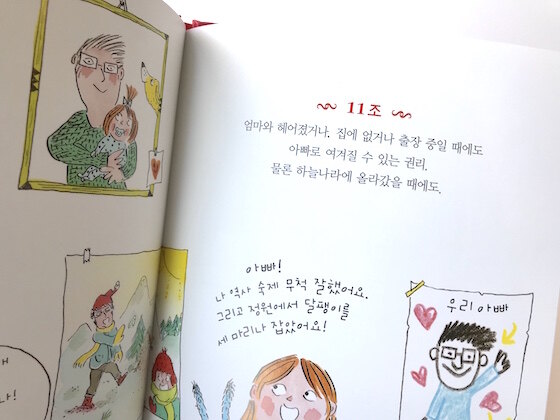 11조
엄마와 헤어졌거나, 집에 없거나 출장 중일 때에도
아빠로 여겨질 수 있는 권리.
물론 하늘나라에 올라갔을 때에도.
아빠!
나 역사 숙제 무척 잘했어요.
그리고 정원에서 달팽이를
세 마리나 잡았어요!
우리 아빠